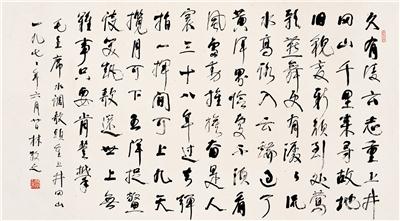 久有凌云志重上井
冈山千里来寻故地
旧貌变新颜到处莺
歌燕舞更有潺潺流
水高路入云端过了
黄洋界险处不须看
风雷动旌旗奋是人
寰三十八年过去弹
指一挥间可上九天
揽月可下五洋捉鳖
谈笑凯歌还世上无
難事只要肯登攀
毛主席水调歌头重上井冈山
一九七年六月林散之